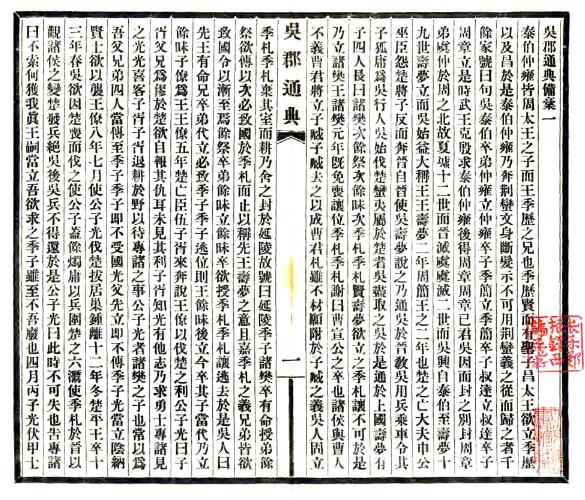 吳郡通典備稾一
泰伯仲雍皆周太王之子而王季歷之兄也季歷賢而有聖子昌太王欲立季歷
以及昌於是泰伯仲雍乃奔荊蠻文身斷髮示不可用荊蠻義之從而歸之者千
餘家號曰句吳泰伯卒弟仲雍立仲雍卒子季簡立季簡卒子叔達立叔達卒子
周章立是時武王克殷求泰伯仲雍後得周章周章已君吳因而封之別封周章
弟虞仲於周之北故夏墟十二世而晉滅虞虞滅二世而吳興自泰伯至壽夢十
九世壽夢立而吳始益大稱王王壽夢二年周簡王之二年也楚之亡大夫申公
巫臣怨楚將子反而奔晉自晉使吳壽夢說之乃通吳於晉敎吳用兵乘車令其
子狐庸爲吳行人吳始伐楚蠻夷屬於楚者吳盡取之吳於是通於上國壽夢有
子四人長曰諸樊次餘祭次餘昧次季札季札賢壽夢欲立之季札讓不可於是
乃立諸樊王諸樊元年旣免喪讓位季札季札謝曰曹宣公之卒也諸侯與曹人
不義曹君將立子臧子臧去之以成曹君札雖不材願附於子臧之義吳人固立
吳郡通典
一
季札季札棄其室而耕乃舍之封於延陵故號曰延陵季子諸樊卒有命授弟餘
祭欲傳以次必致國於季札而止以稱先王壽夢之意且嘉季札之義兄弟皆欲
致國令以漸至焉餘祭卒弟餘昧立餘昧卒欲授季札季札讓逃去於是吳人曰
先王有命兄卒弟代立必致季子季子逃位則王餘昧後立今卒其子當代乃立
餘昧子僚爲王王僚五年楚亡臣伍子胥來奔說王僚以伐楚之利公子光曰子
胥父兄爲僇於楚欲自報其仇耳未見其利子胥知光有他志乃求勇士專諸見
之光光喜客子胥子胥退耕於野以待專諸之事公子光者諸樊之子也常以爲
吾父兄弟四人當傳至季子季子卽不受國光父先立卽不傳季子光當立陰納
賢士欲以襲王僚八年七月使公子光伐楚拔居巢鍾離十二年冬楚平王卒十
三年春吳欲因楚喪而伐之使公子蓋餘燭庸以兵圍楚之六灊使季札於晉以
觀諸侯之變楚發兵絕吳後吳兵不得還於是公子光曰此時不可失也告專諸
曰不索何獲我眞王嗣當立吾欲求之季子雖至不吾廢也四月丙子光伏甲士